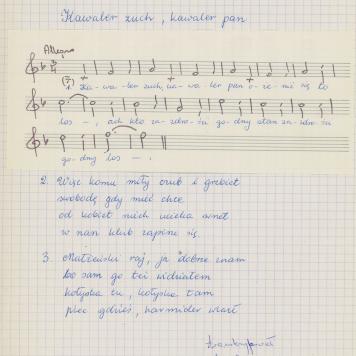 Kawaler zuch, kawaler pan
Allegro
1. Ka-wa-ler zuch, ka-wa-ler pan o-że-nić się to
los - , ach kto za-zdro-ści go-dny stan za-zdro-ści
go-dny los - .
2. Więc komu miły czub i grzbiet
swobodę gdy mieć chce
od kobiet niech ucieka wnet
w nasz klub zapisze się.
3. Małżeński raj, ja dobrze znam
bo sam go też widziałem
kołyska tu, kołyska tam
piec gdzieś, harmider